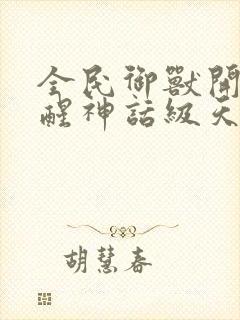 全民御獸開
醒神話級天
胡慧春